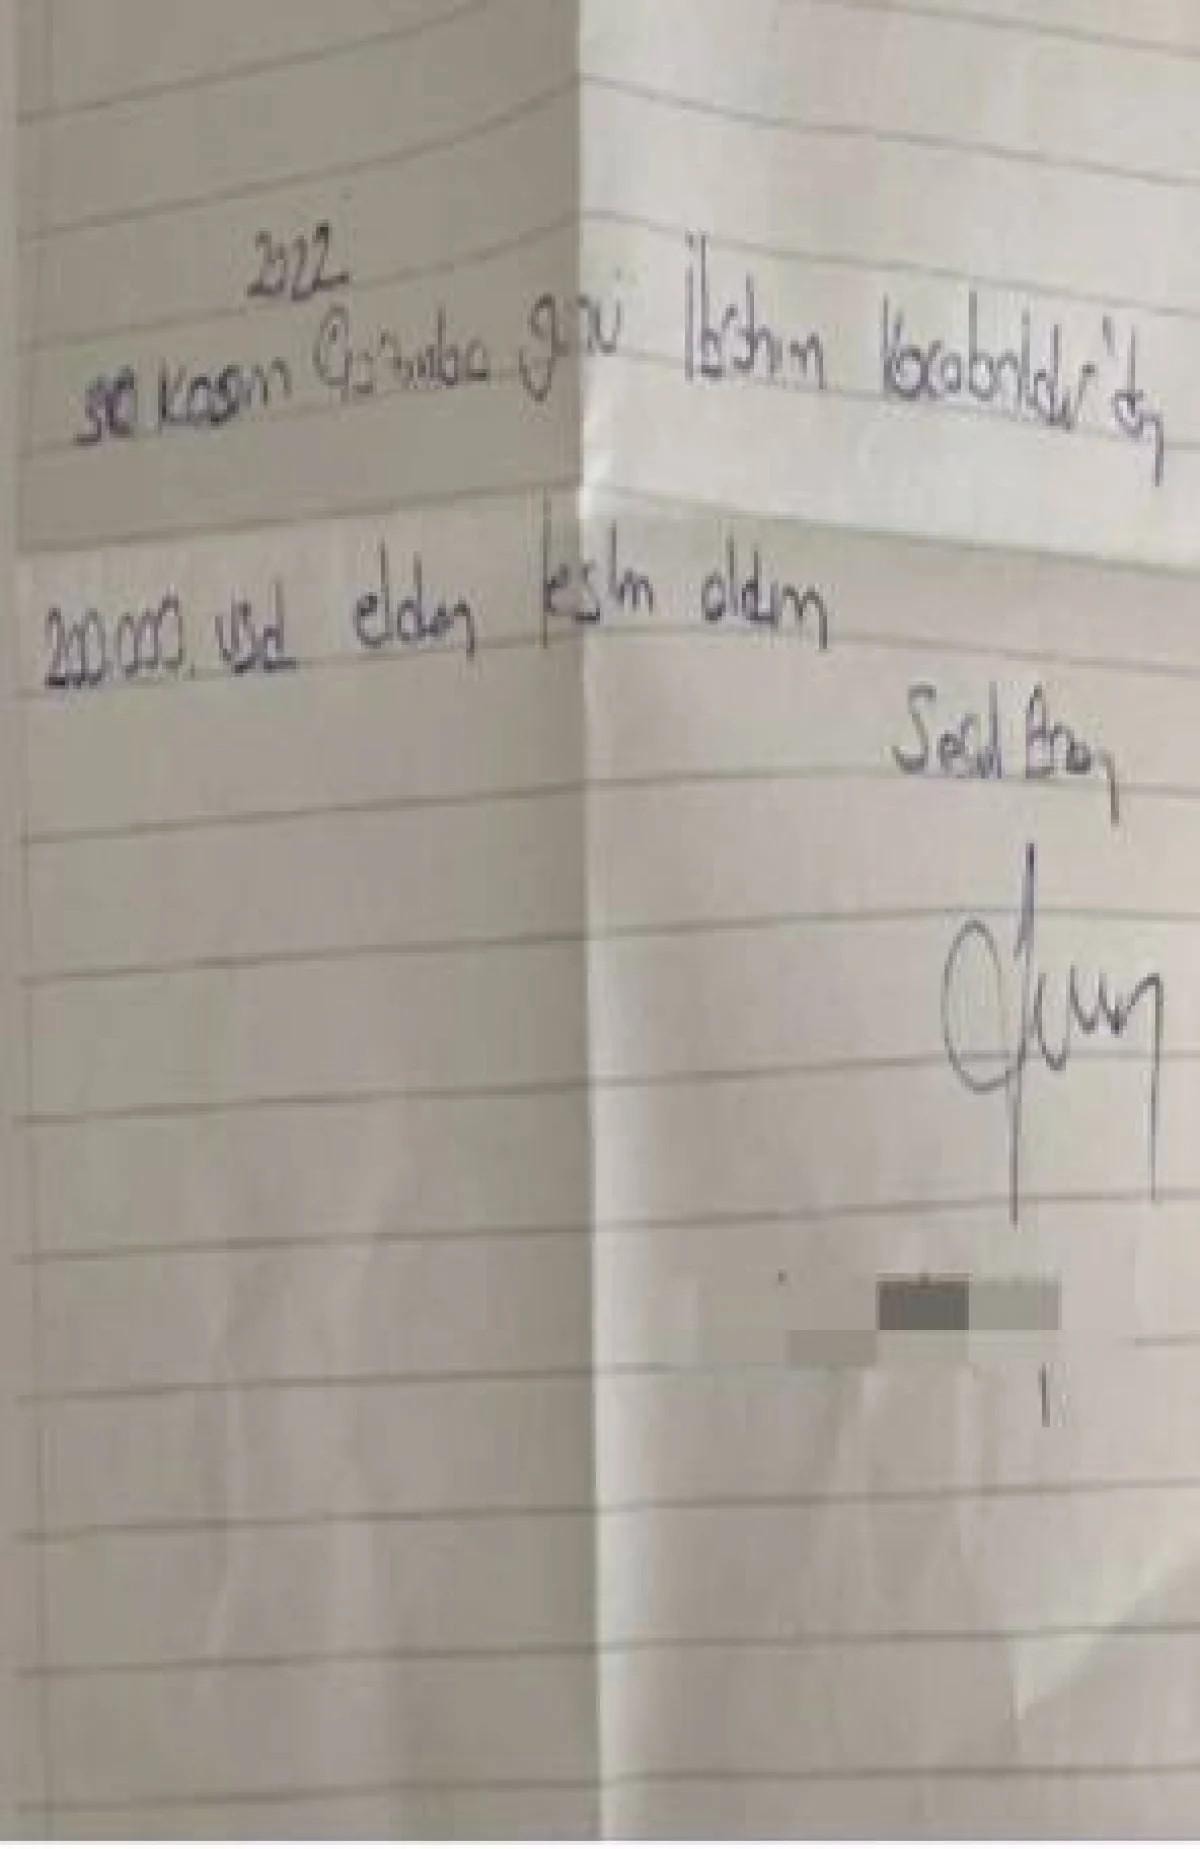 2022
30 Kasım Çarşamba günü İbrahim Kocabaldır'dan
200.000. Usd elden teslim aldım
Seçil Erzan